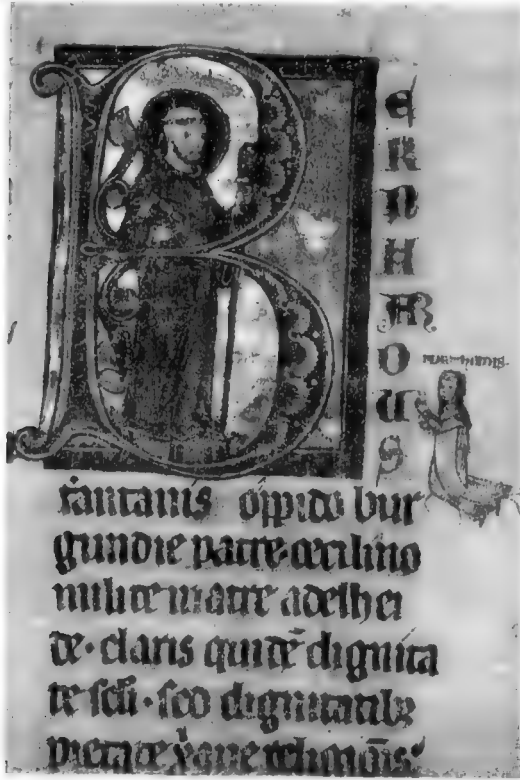 B
E
R
N
H
AR
D
U
S
fantanis oppido bur
gundie patre tecilino
milite matre adelhei
de · claris quidē dignita
te scli · sed dignitatibꝫ
pietate